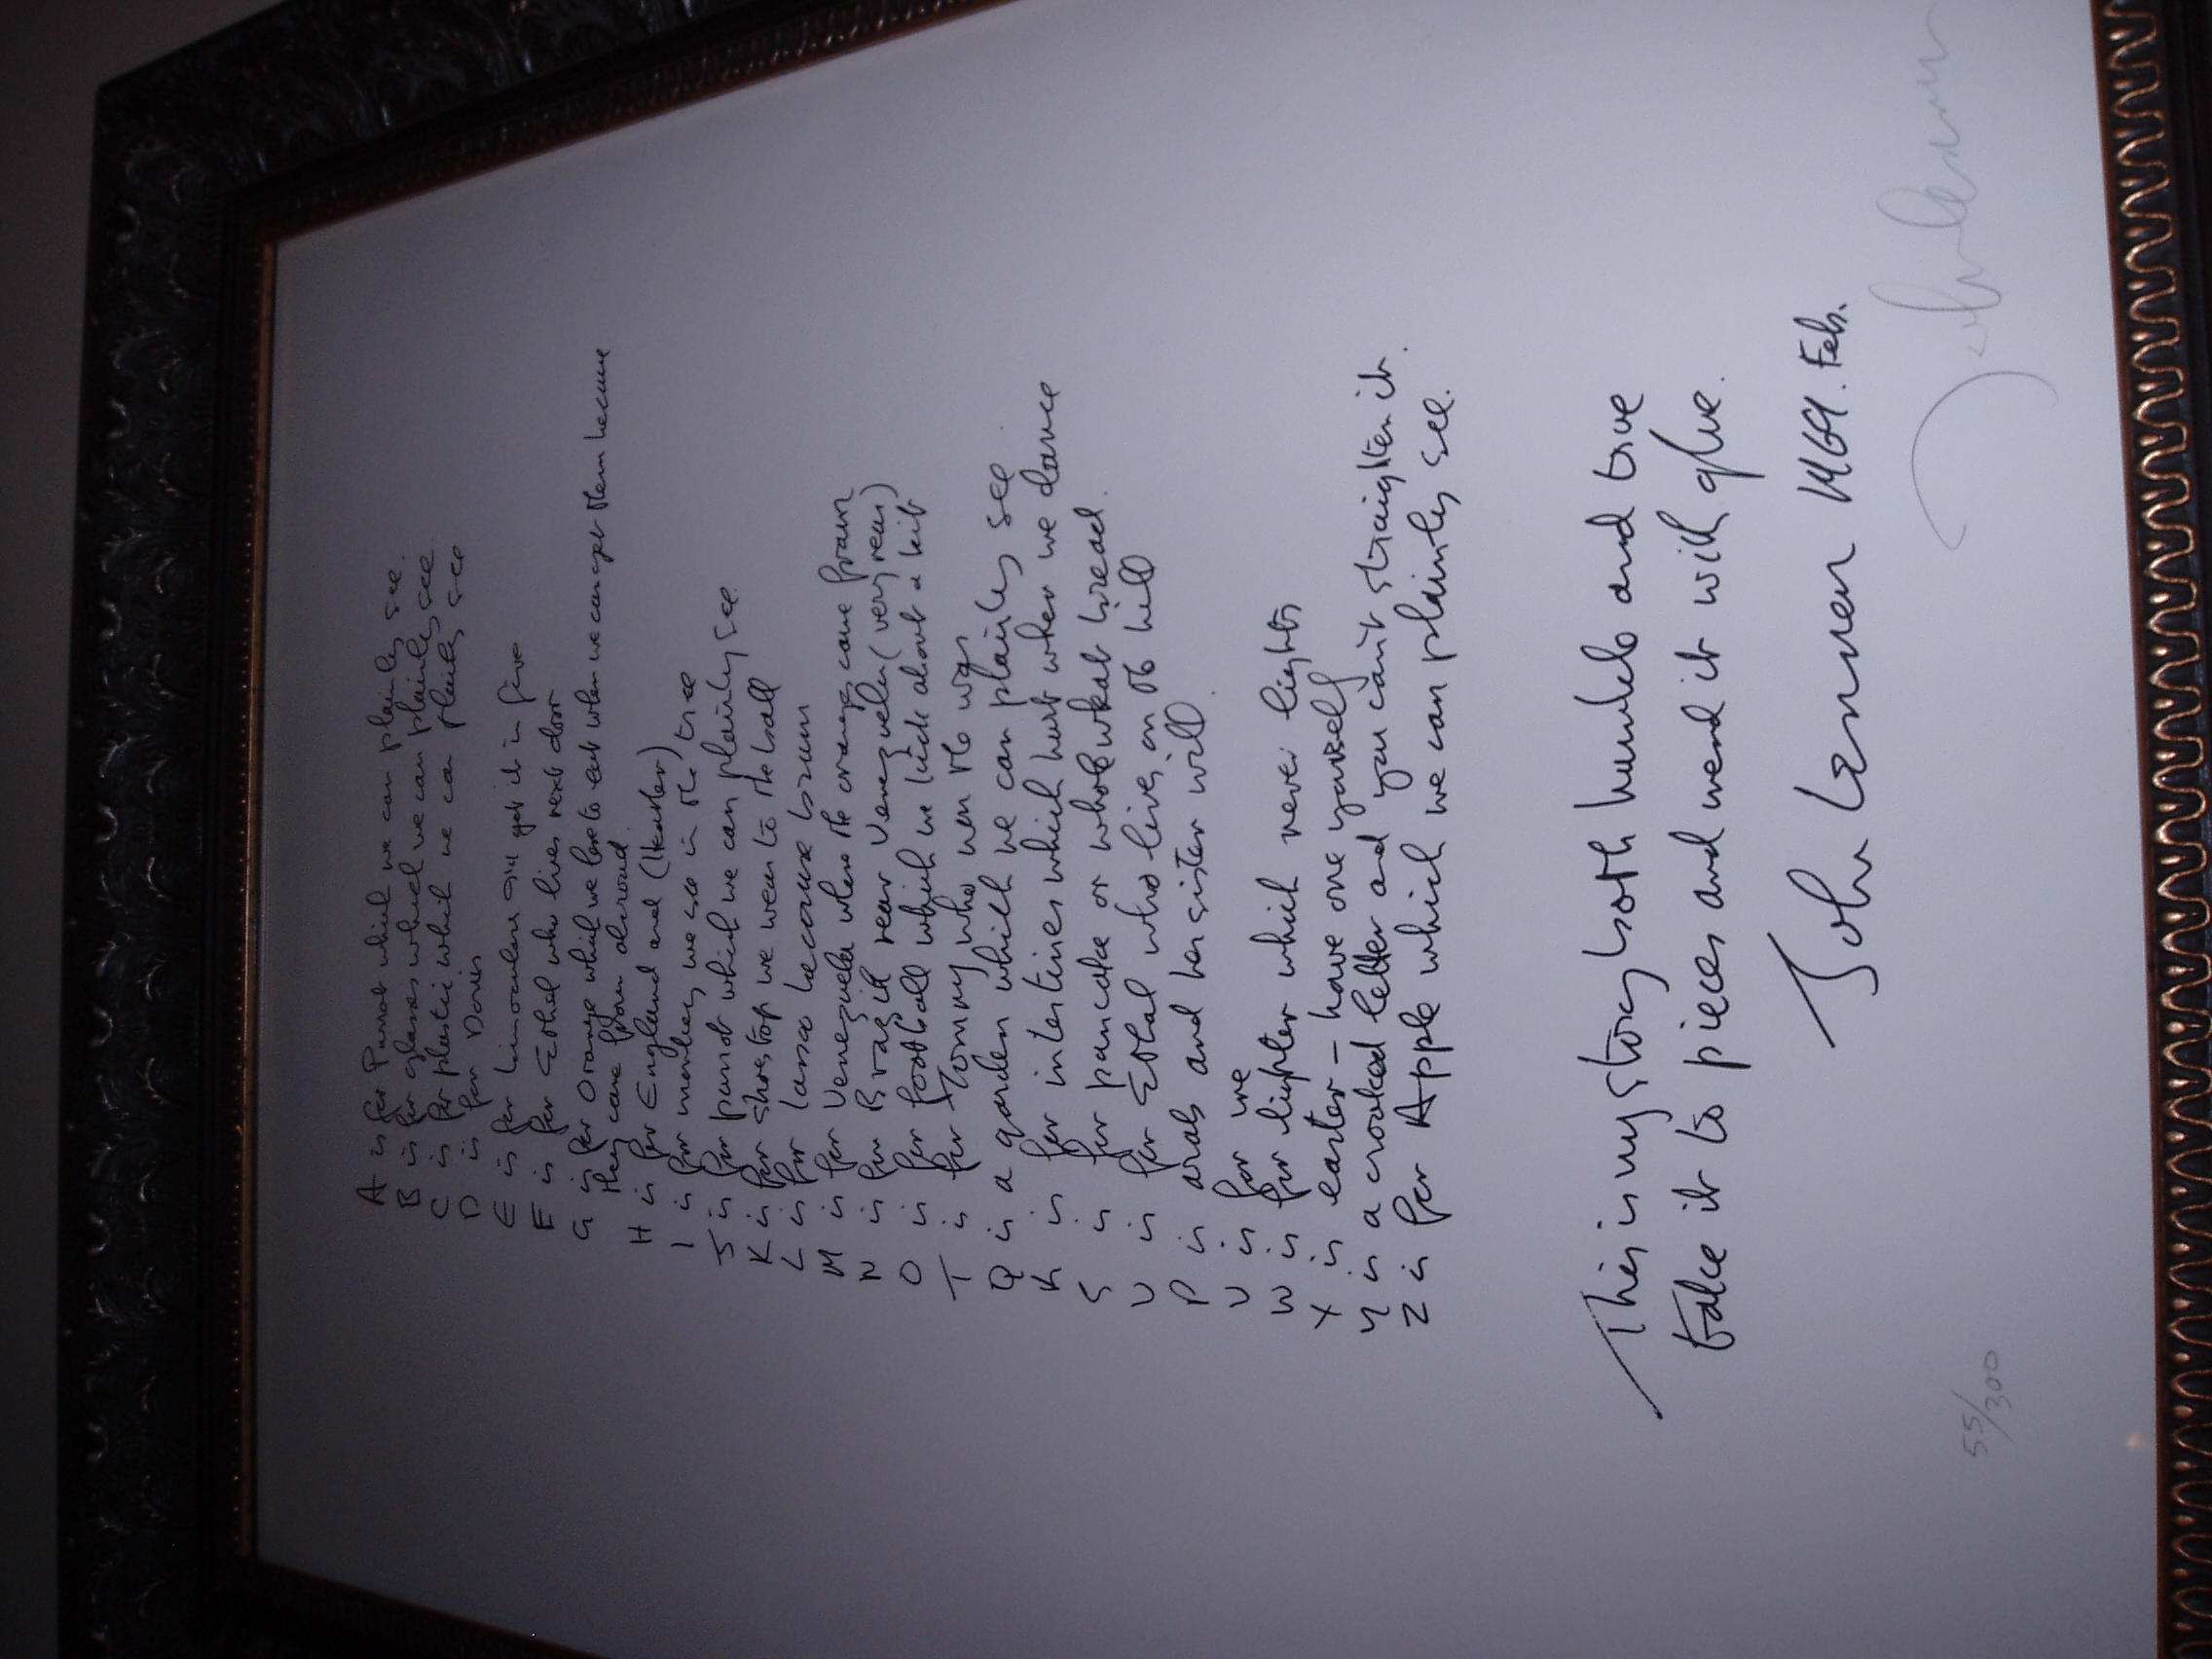 A is for Parrot which we can plainly see.
B is for glasses which we can plainly see.
C is for plastic which we can plainly see
D is for Doris
E is for binoculars I'll get it in five
F is for Ethel who lives next door
G is for Orange which we love to eat when we can get them because
they come from abroad.
H is for England and (Heather)
I is for monkey we see in the tree
J is for parrot which we can plainly see.
K is for shoestop we wear to the ball
L is for land because brown
M is for Venezuela where the oranges come from
N is for Brazil near Venezuela (very near)
O is for football which we kick about a bit
T is for Tommy who won the war
Q is a garden which we can plainly see
R is for intestines which hurt when we dance
S is for pancake or whole wheat bread.
U is for Ethel who lives on the hill
P is arab and her sister will.
V is for me
W is for lighter which never lights
X is easter - have one yourself
Y is a crooked letter and you can't straighten it.
Z is for Apple which we can plainly see.
This is my story both humble and true
take it to pieces and mend it with glue.
John Lennon 1969. Feb.
55/300 John Lennon